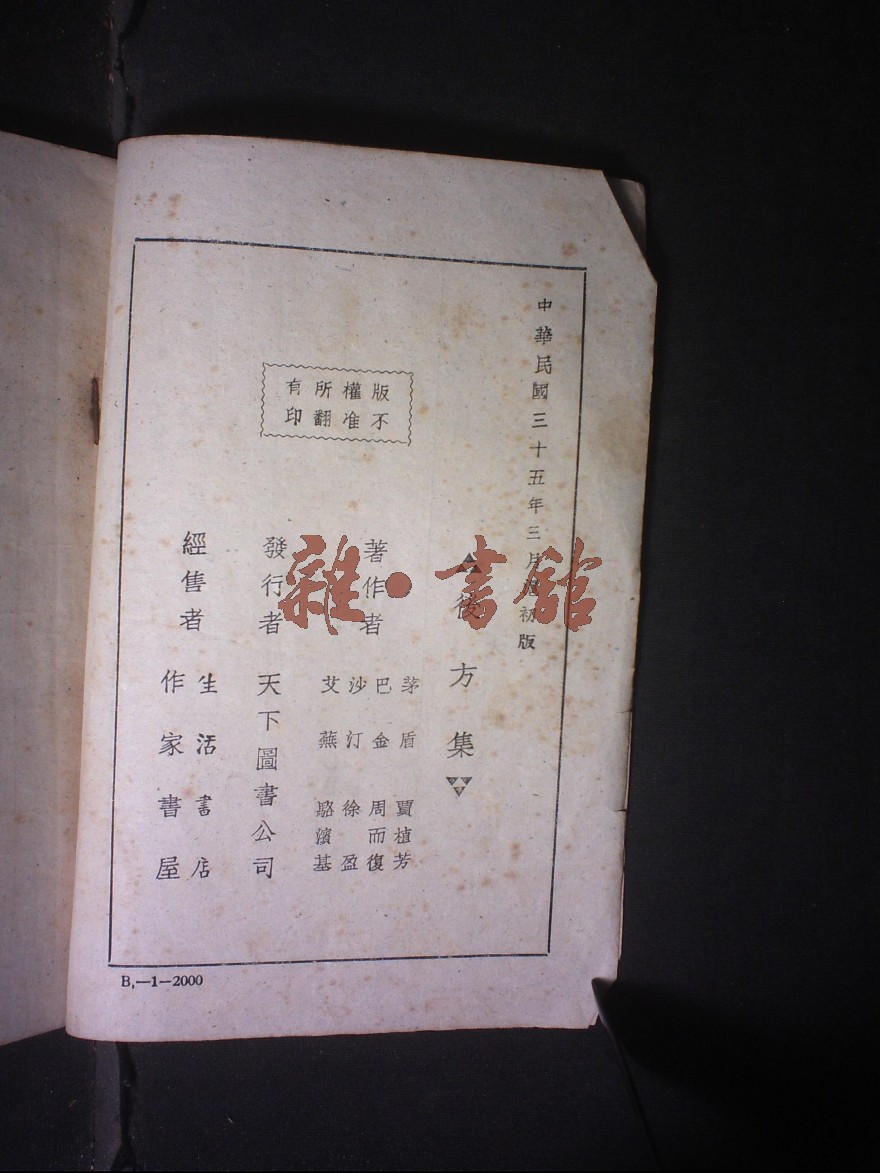 中華民國三十五年三月滬初版
▲後方集▼
版權所有
不准翻印
著作者
茅盾 賈植芳
巴金 周而復
沙汀 徐盈
艾蕪 駱濱基
發行者 天下圖書公司
經售者
生活書店
作家書屋
B,—1—2000
雜·書館